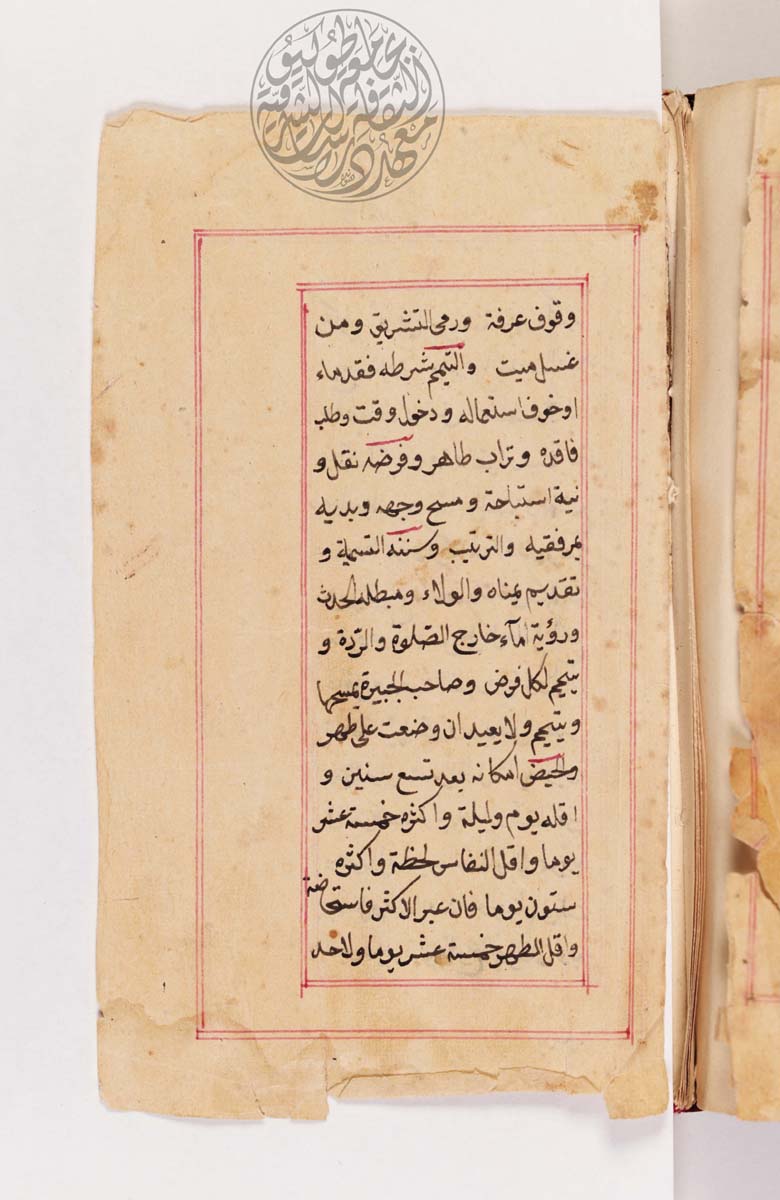 وقوف عرفة ورمى التشريق ومن
غسل ميت والتيمم شرطه فقد ماء
او خوف استعماله ودخول وقت وطلب
فاقده وتراب طاهر وفرضه نقل و
نية استباحة ومسح وجهه ويديه
بمرفقيه والترتيب وسننه التسمية و
تقديم يمناه والولاء ومبطله الحدث
ورؤية امآء خارج الصّلوة والرّدة و
يتيمم لكل فرض وصاحب الجبيرة يمسحها
ويتيمم ولا يعيد ان وضعت على طهر
والحيض امكانه بعد تسع سنين و
اقله يوم وليلة واكثره خمسة عشر
يوما واقل النفاس لحظة واكثره
ستون يوما فان عبر الاكثر فاستحاضة
واقل الطهر خمسة عشر يوما ولا حد